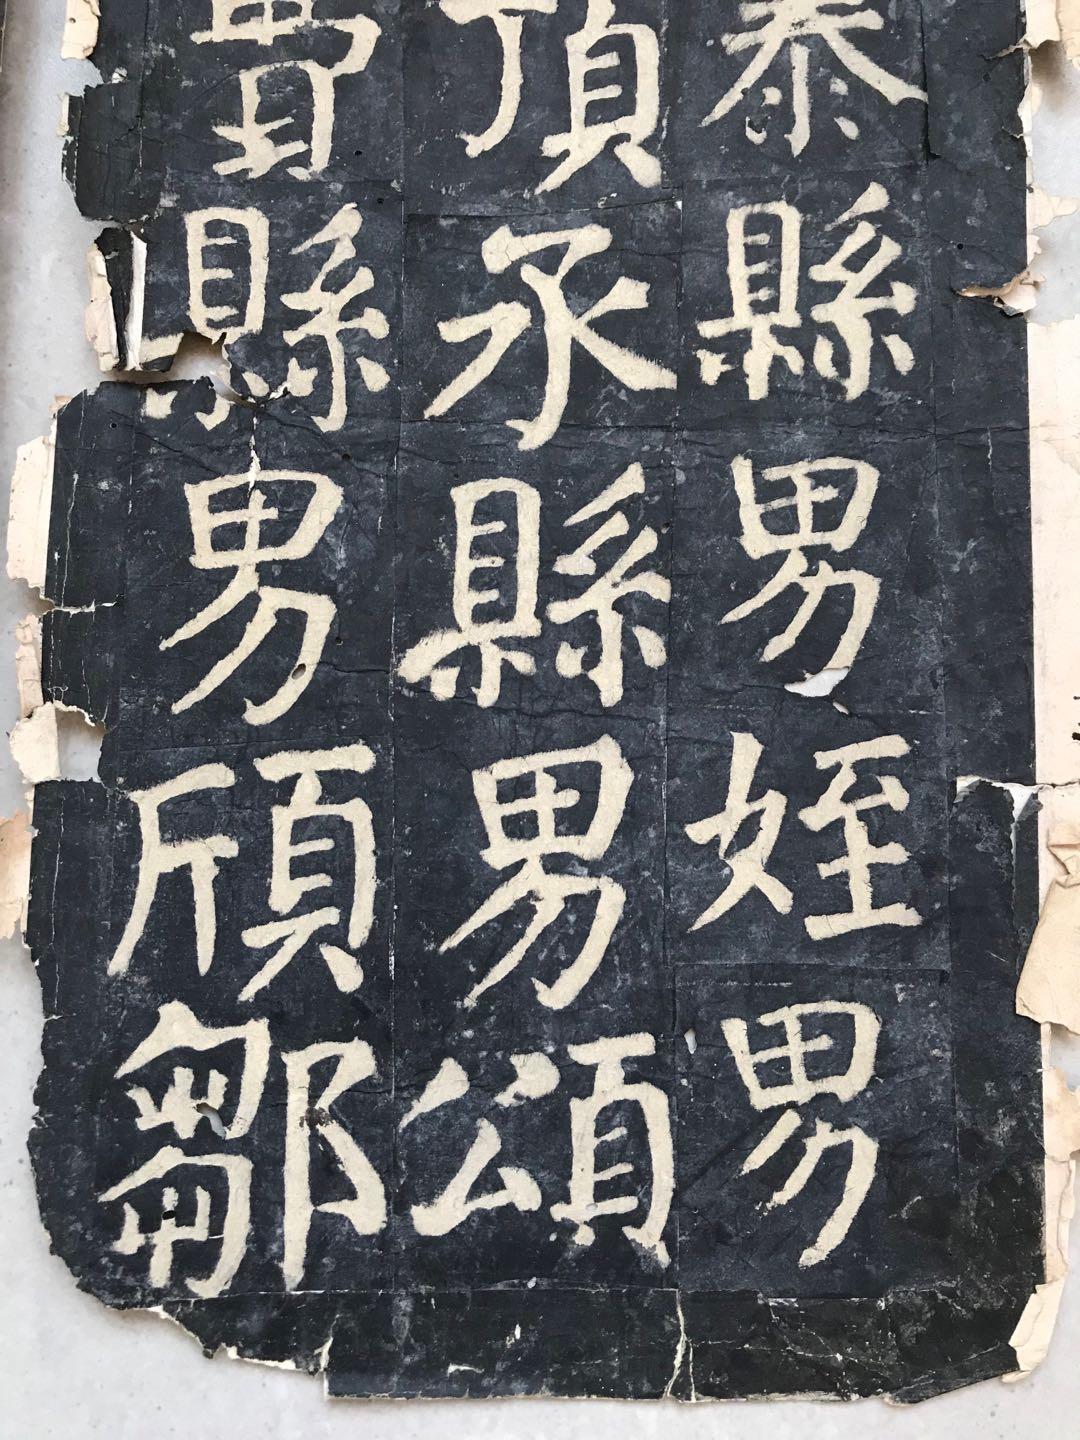 泰縣男姪男
頂氶縣男頌
費縣男頎鄒